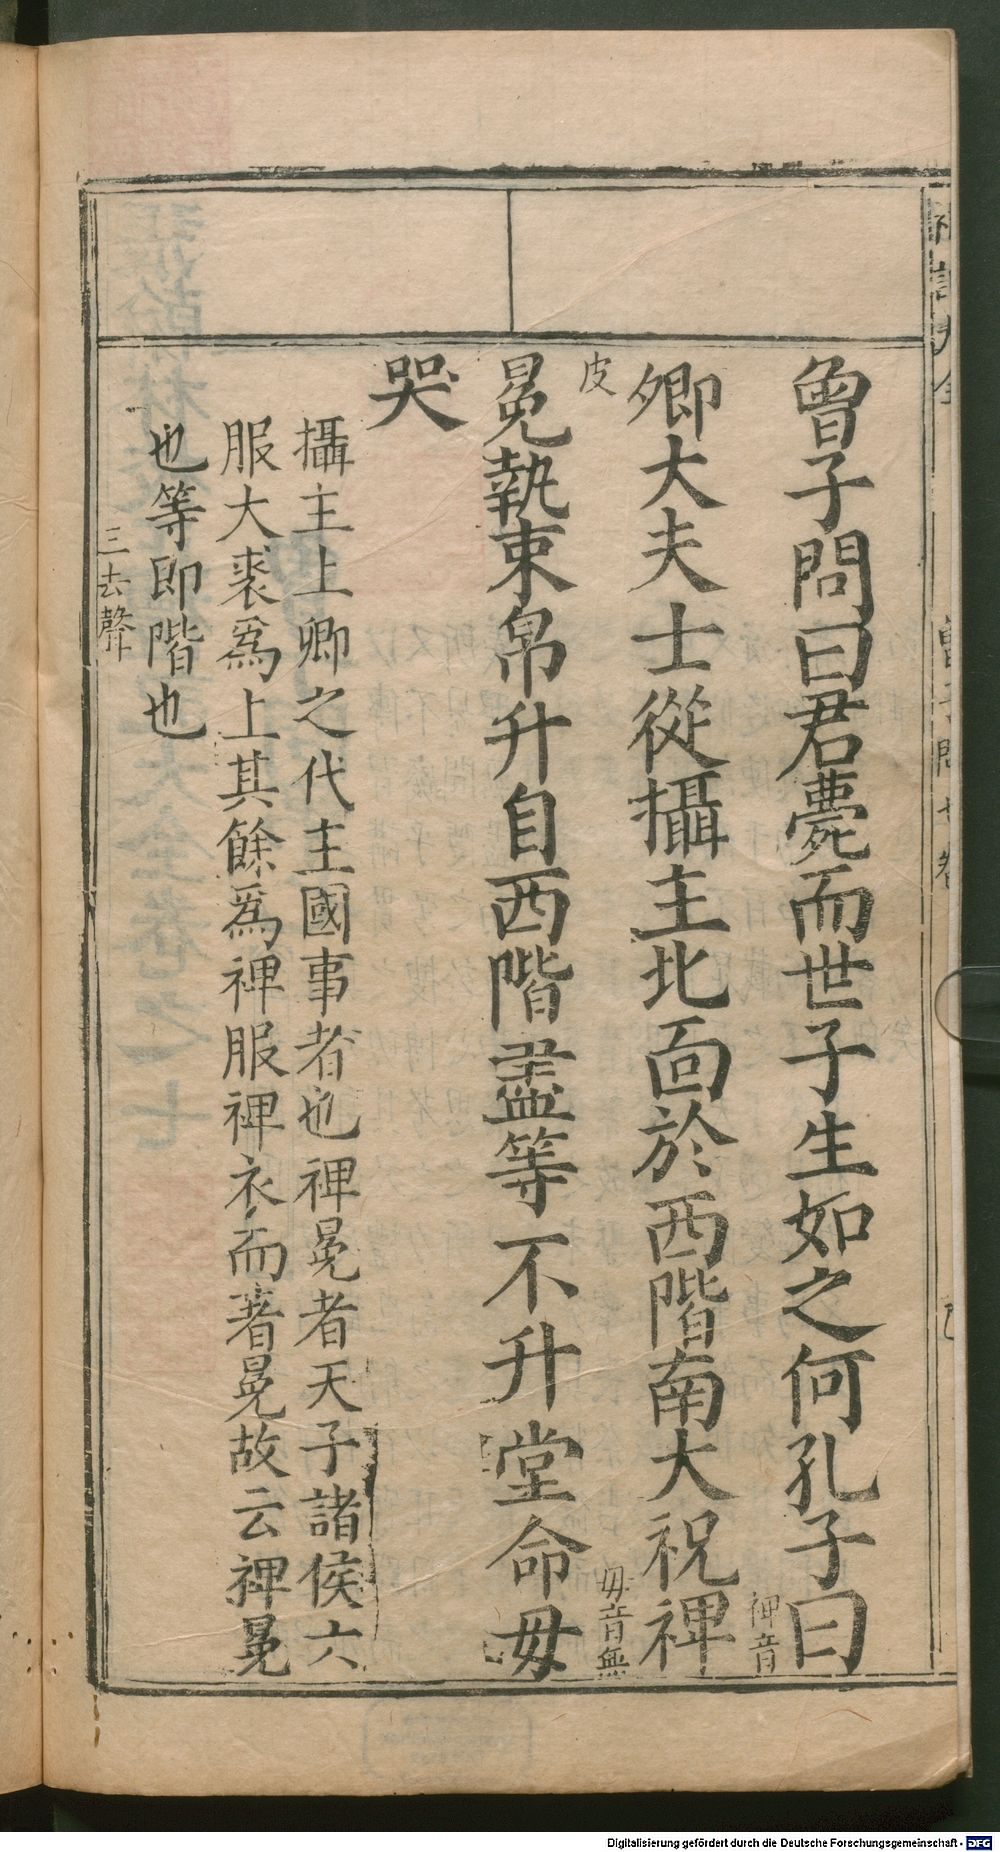 曾子問曰君薨而世子生如之何孔子曰
裨音
卿大夫士從攝主北面於西階南大祝裨
皮
毋音無
冕執束帛升自西階盡等不升堂命毋
哭
攝主上卿之代主國事者也裨冕者天子諸侯六
服大裘爲上其餘爲裨服裨衣而著冕故云裨冕
也等即階也
三去聲
Digitalisierung gefördert durch die Deutsche Forschungsgemeinschaft - DFG